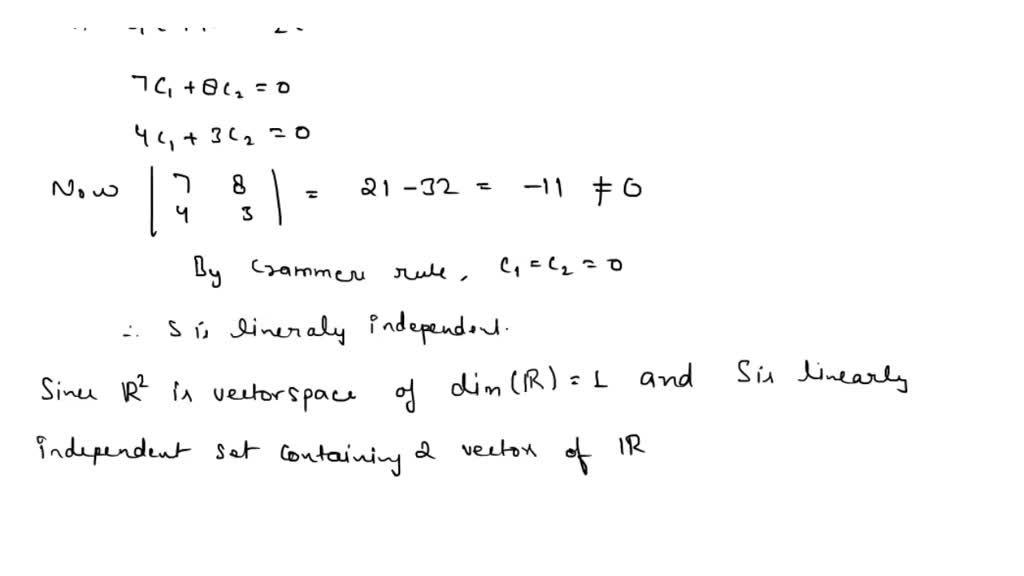 7C₁ + 8C₂ = 0
4C₁ + 3C₂ = 0
Now | 7 8 | = 21 - 32 = -11 ≠ 0
| 4 3 |
By Crammer rule, C₁ = C₂ = 0
∴ S is lineraly independent.
Since ℝ² is vectorspace of dim(ℝ) = 2 and S is linearly
independent set containing 2 vector of ℝ